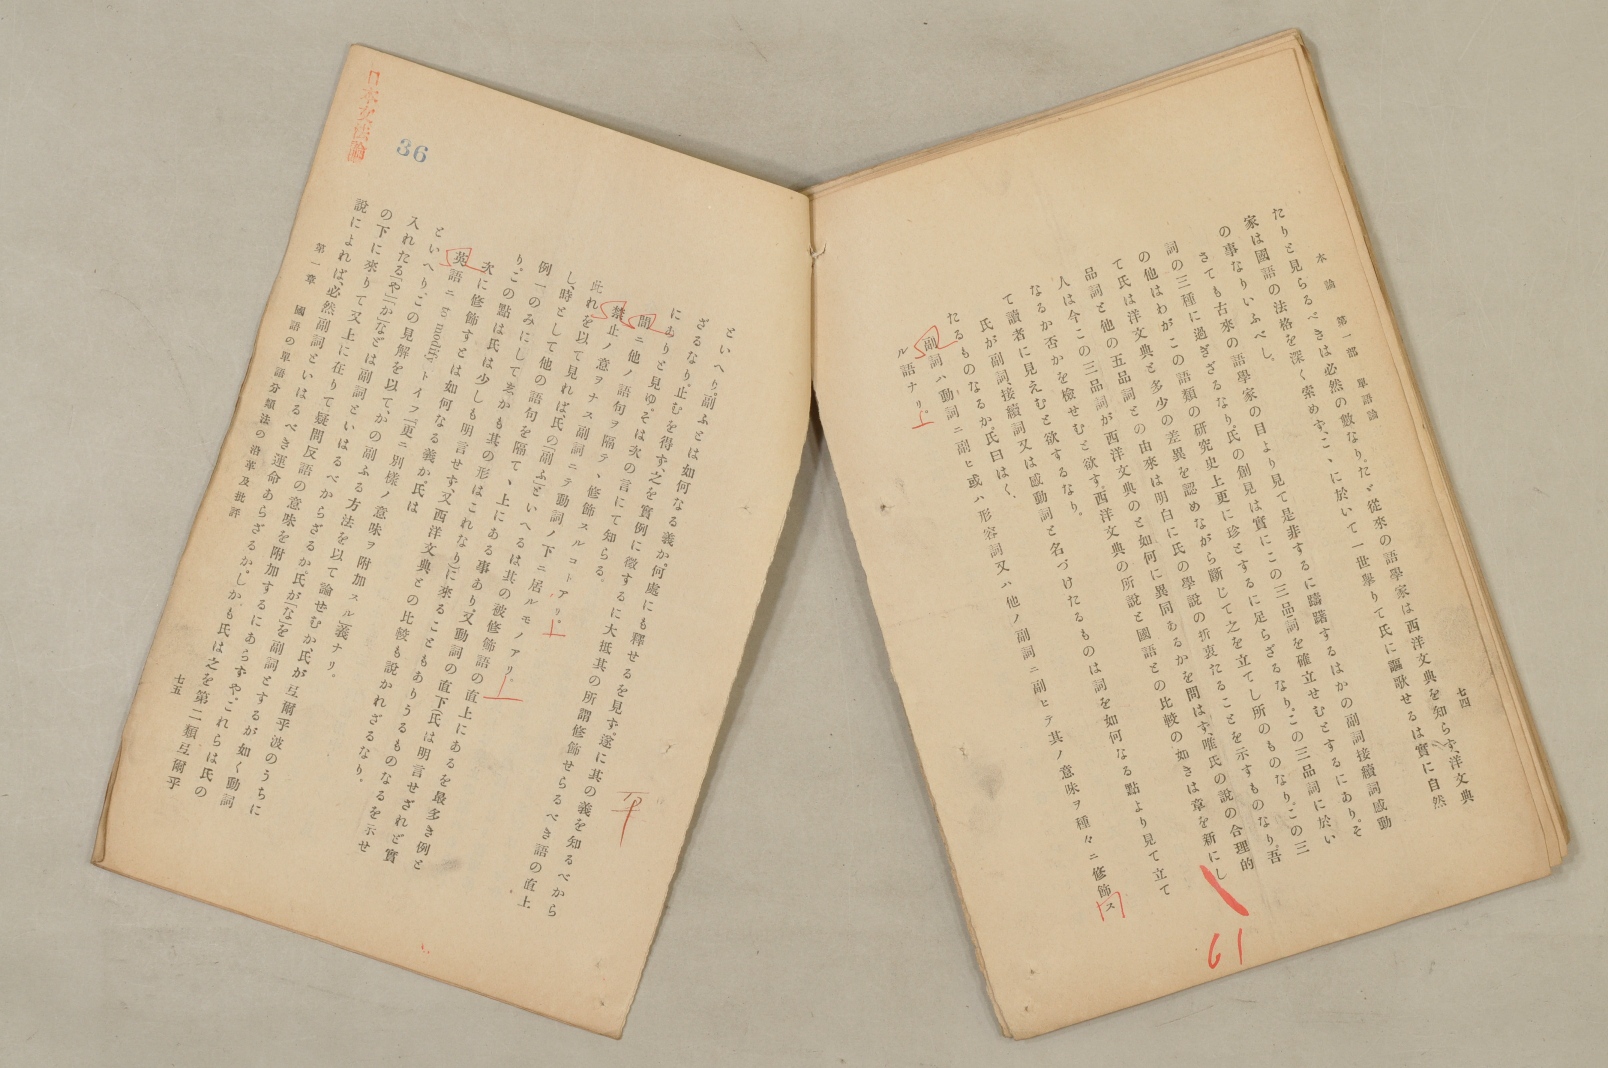 本論 第一部 單語論
七四
たりと見らるべきは必然の數なり。たゞ從來の語學家は西洋文典を知らず、洋文典
家は國語の法格を深く索めず、こゝに於いて一世擧りて氏に謳歌せるは實に自然
の事なりいふべし。
さても古來の語學家の目より見て是非するに躊躇するはかの副詞接續詞感動
詞の三種に過ぎざるなり。氏の創見は實にこの三品詞を確立せむとするにあり。そ
の他はわがこの語類の研究史上更に珍とするに足らざるなり。この三品詞に於い
て氏は洋文典と多少の差異を認めながら斷じて之を立てし所のものなり。この三
品詞と他の五品詞との由來は明白に氏の學説の折衷たることを示すものなり。吾
人は今この三品詞が西洋文典のと如何に異同あるかを問はず、唯氏の説の合理的
なるか否かを檢せむと欲す。西洋文典の所説と國語との比較の如きは章を新にし
て讀者に見えむと欲するなり。
氏が副詞、接續詞又は感動詞と名づけたるものは詞を如何なる點より見て立て
たるものなるか。氏曰はく、
副詞ハ動詞ニ副ヒ或ハ形容詞又ハ他ノ副詞ニ副ヒテ其ノ意味ヲ種々ニ修飾ス
ル語ナリ。
61
といへり。副ふとは如何なる義か。何處にも釋せるを見ず。遂に其の義を知るべから
ざるなり。止むを得ず、之を實例に徵するに大抵其の所謂修飾せらるべき語の直上
にありと見ゆ。そは次の言にて知らる。
間ニ他ノ語句ヲ隔テヽ修飾スルコトアリ。
禁止ノ意ヲナス副詞ニテ動詞ノ下ニ居ルモノアリ。
此れを以て見れば、氏の「副ふ」といへるは其の被修飾語の直上にあるを最多き例と
し、時として他の語句を隔てゝ上にある事あり、又動詞の直下(氏は明言せざれど實
例一のみにして志かも其の形はこれなり)に來ることもありうるものなるを示せ
り。この點は氏は少しも明言せず、又西洋文典との比較も說かれざるなり。
次に修飾すとは如何なる義か。氏は
英語ニ to modify トイフ「更ニ別樣ノ意味ヲ附加スル」義ナリ。
といへり。この見解を以て、かの副ふる方法を以て論せむか、氏が弖爾乎波のうちに
入れたる「や」「か」などは副詞といはるべからざるか。氏が「な」を副詞とするが如く動詞
の下に來りて又上に在りて疑問反語の意味を附加するにあらずや。これらは氏の
說によれば、必然副詞といはるべき運命あらざるか。しかも氏は之を第二類弖爾乎
第一章 國語の單語分類法の沿革及批評
七五
36
日本文法論